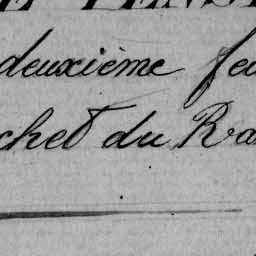 deuxième feu
chet du Ra